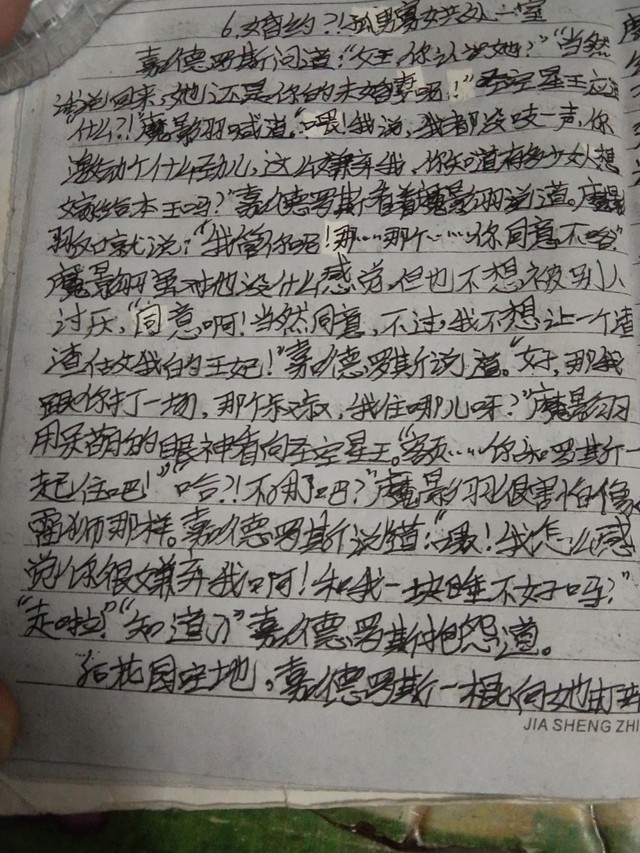 6.婚约?!孤男寡女共处一室
嘉德罗斯问道:“女王,你认识她?”“当然
话说回来,她还是你的未婚妻呢!”圣空星王应道
什么?!”魔影羽喊道。“喂!我说,我都没吱一声,你
激动个什么劲儿,这么嫌弃我,你知道有多少女人想
嫁给本王吗?”嘉德罗斯看着魔影羽说道。魔影
羽就说:“我管你呢!那……那个……你同意不哈”
魔影羽虽对他没什么感觉,但也不想被别人
讨厌,“同意啊!当然同意,不过,我不想让一个渣
渣估文我的王妃!”嘉德罗斯说道。“好,那我
跟你打一场,那个叔叔,我住哪儿呀?”魔影羽
用呆萌的眼神看向圣空星王。“额……你和罗斯一
起住吧!”“哈?!不用吧?”魔影羽很害怕像
雷狮那样。嘉德罗斯说道:“喂!我怎么感
觉你很嫌弃我啊!和我一块睡不好吗?”
“走啦”“知道了”嘉德罗斯抱怨道。
后花园空地,嘉德罗斯一棍向她打去
JIA SHENG ZHI